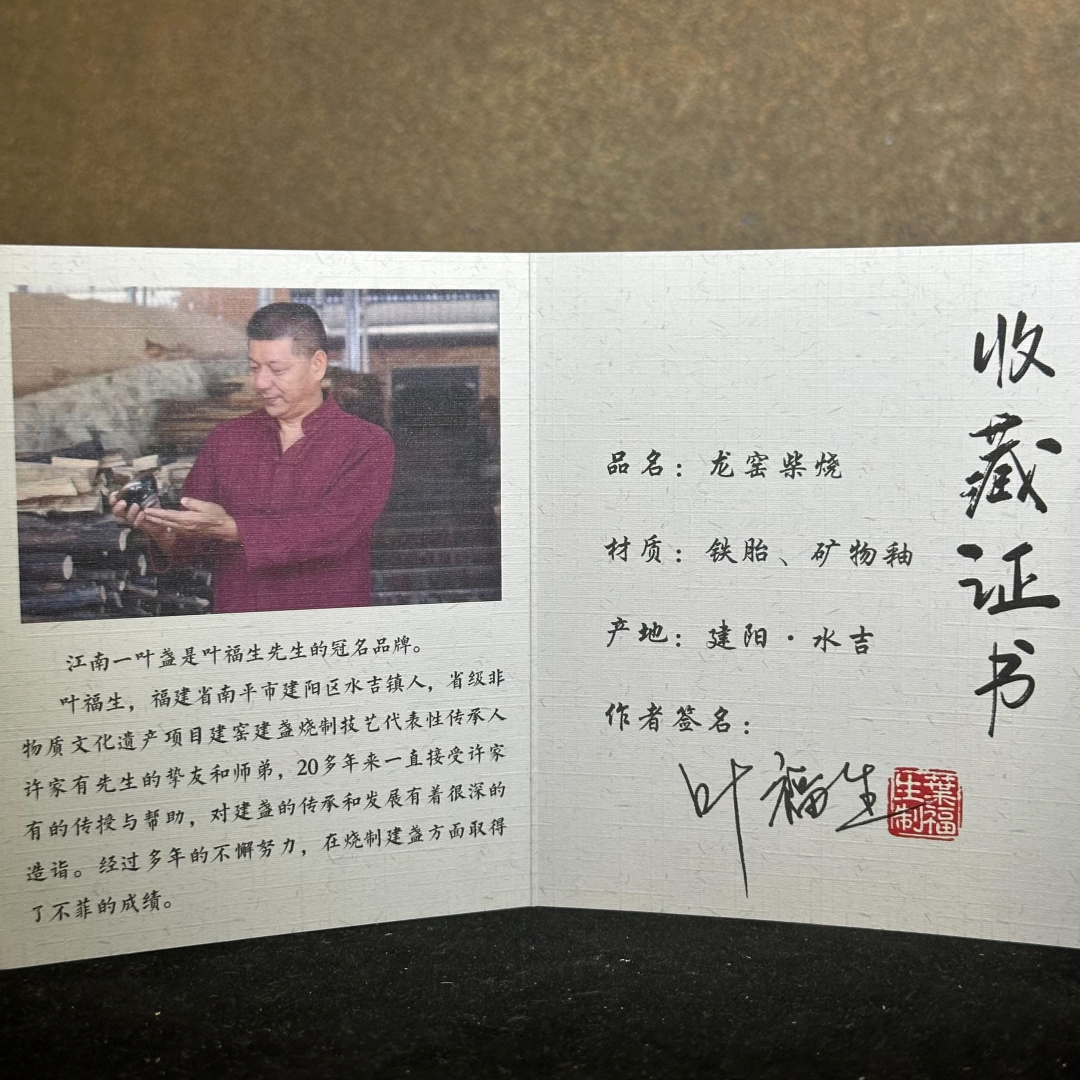 江南一叶盏是叶福生先生的冠名品牌。
叶福生，福建省南平市建阳区水吉镇人，省级非
物质文化遗产项目建窑建盏烧制技艺代表性传承人
许家有先生的挚友和师弟，20多年来一直接受许家
有的传授与帮助，对建盏的传承和发展有着很深的
造诣。经过多年的不懈努力，在烧制建盏方面取得
了不菲的成绩。
收藏证书
品名：龙窑柴烧
材质：铁胎、矿物釉
产地：建阳·水吉
作者签名：
叶福生
葉福
生制